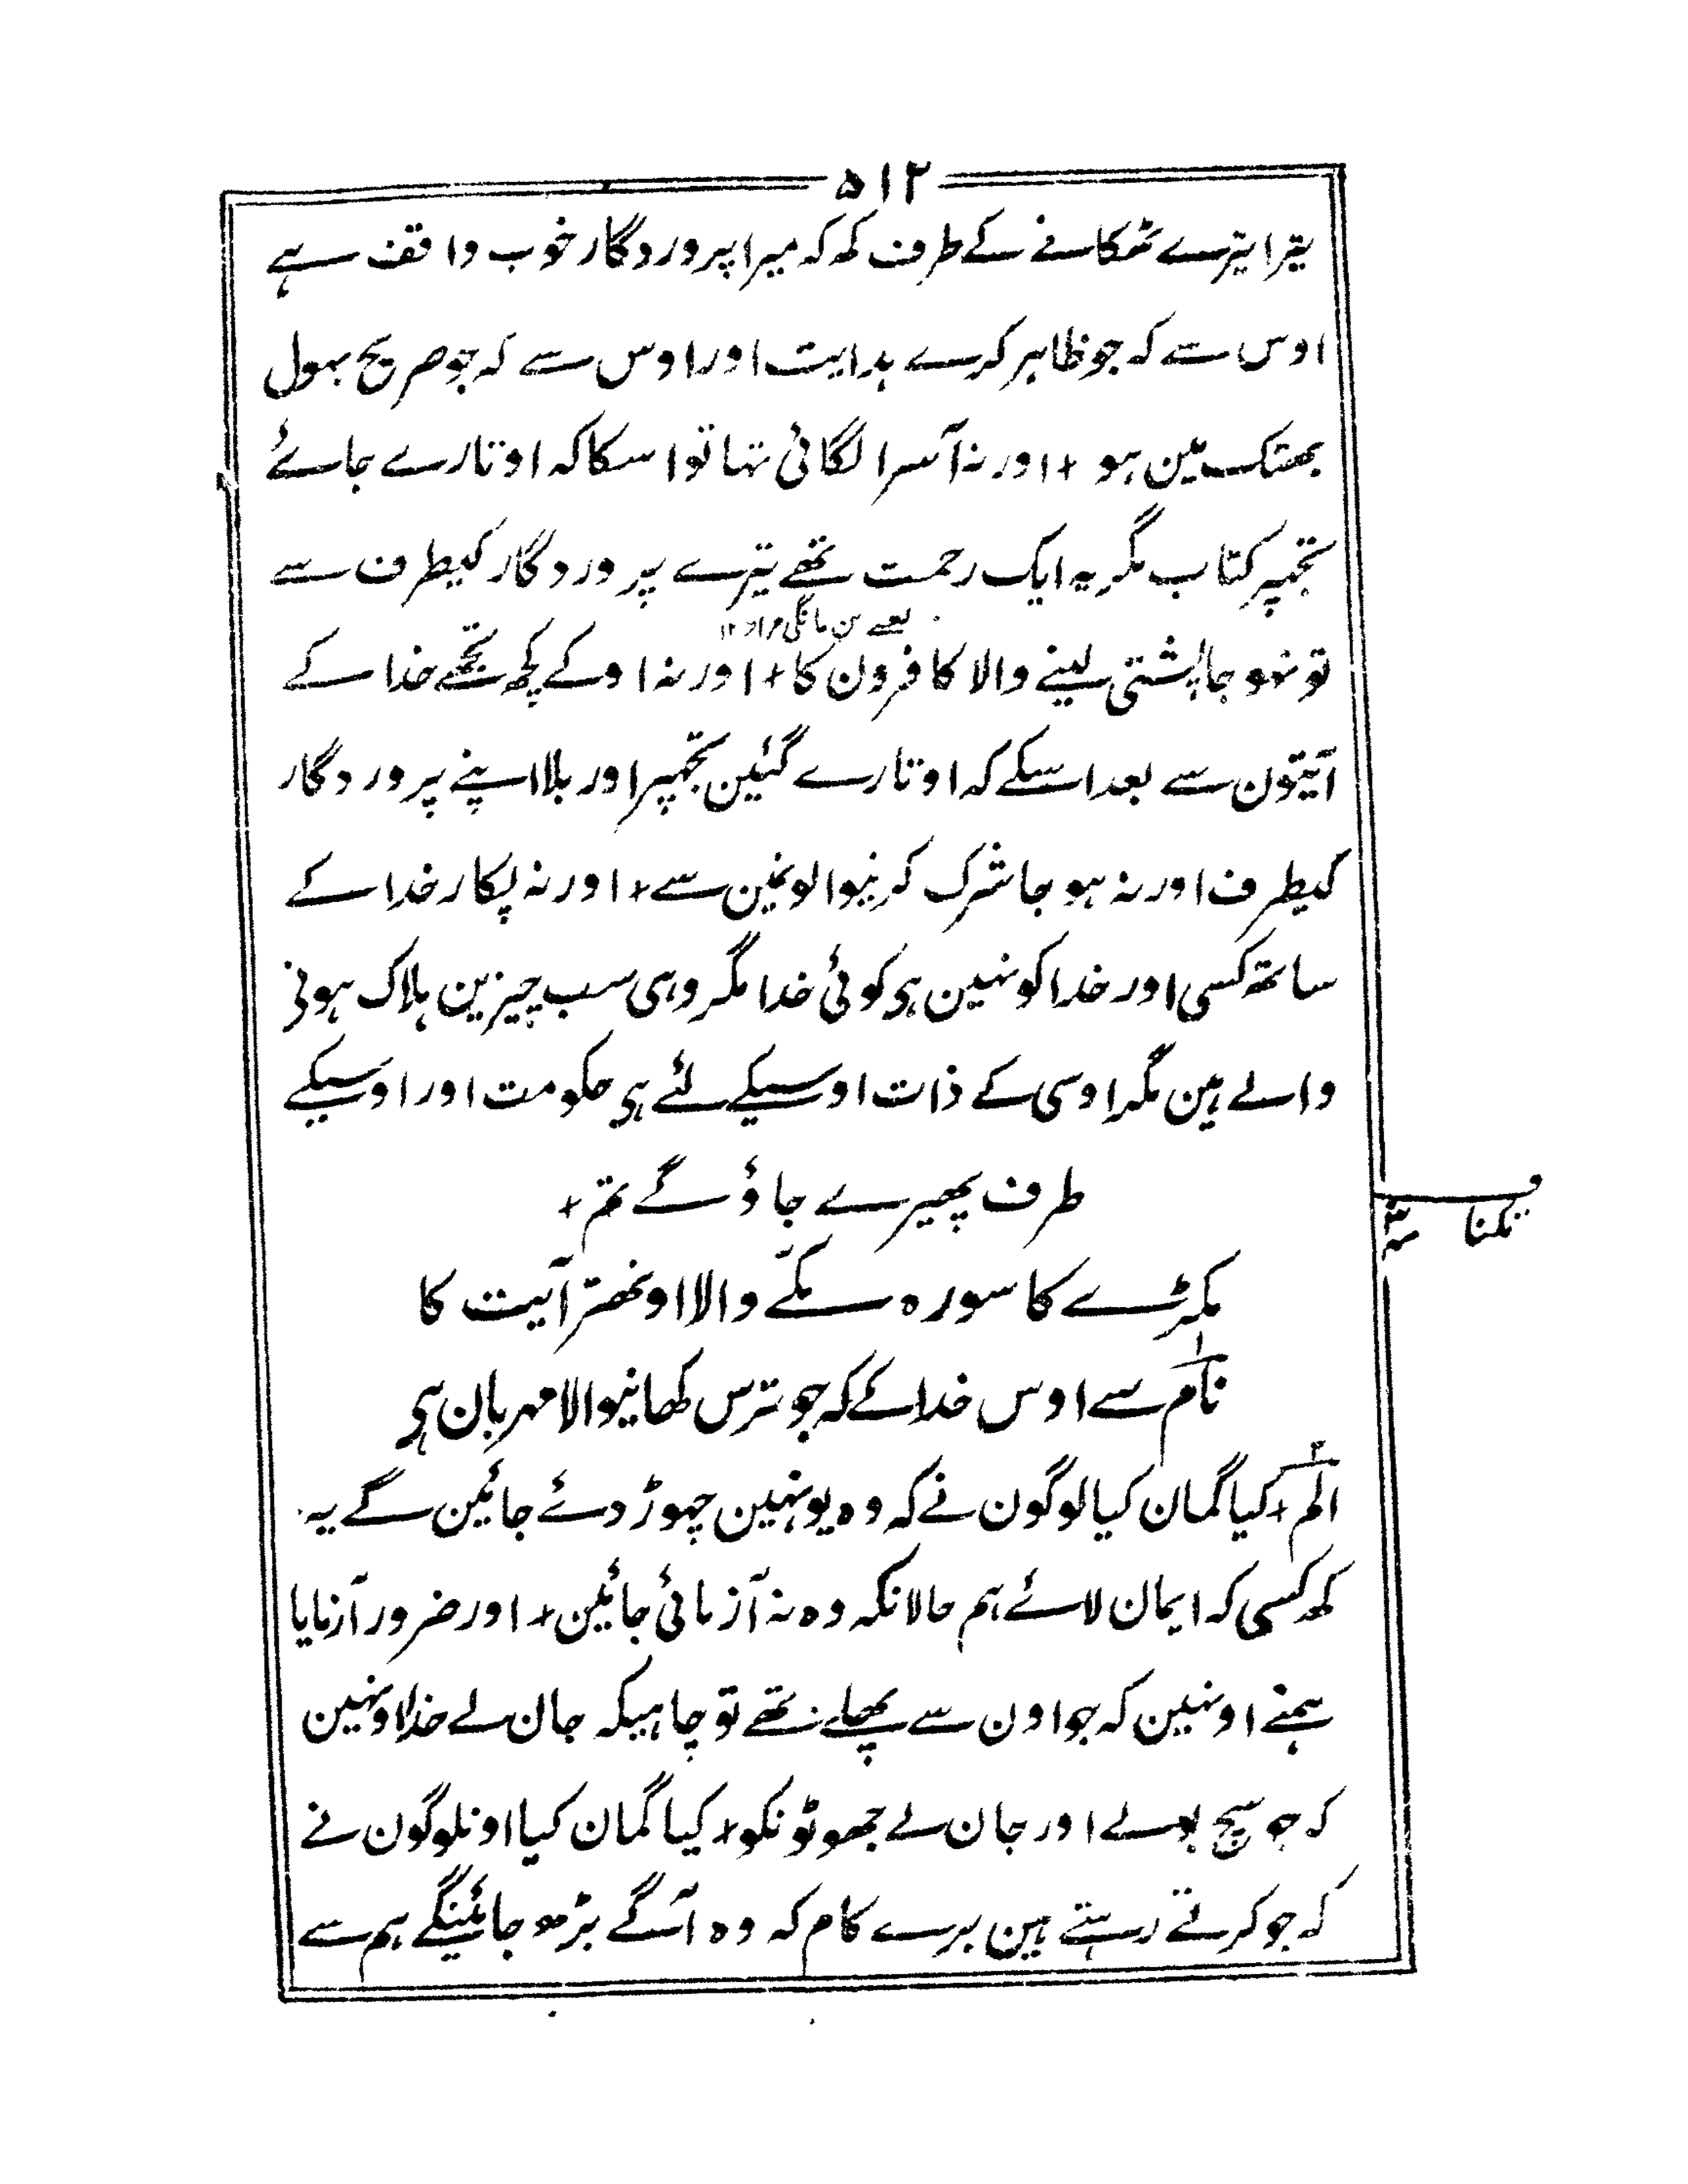 ۵۱۲
تیرا تیرے ٹھکانے کے طرف کہہ کہ میرا پروردگار خوب واقف ہے
اوس سے کہ جو ظاہر کرے ہدایت اور اوس سے کہ جو صریح بہول
بھٹک مین ہو + اور نہ آسرا لگائی تہا تو اسکا کہ اوتارے جائے
تجہپر کتاب مگر یہ ایک رحمت تھے تیرے پروردگار کیطرف سے
یعنے بن مانگی مراد ۱۲
تو نہو جا پشتی لینے والا کافرون کا + اور نہ اوکے کچھ تجھے خدا کے
آیتون سے بعد اسکے کہ اوتارے گئین تجہپر اور بلا اپنے پروردگار
کیطرف اور نہ ہو جا شرک کرنیوالونمین سے + اور نہ پکار خدا کے
ساتھ کسی اور خدا کو نہین ہی کوئی خدا مگر وہی سب چیزین ہلاک ہونی
والے ہین مگر اوسی کے ذات اوسیکے لئے ہی حکومت اور اوسیکے
طرف پھیرے جاؤ گے تم +
مکڑے کا سورہ مکّے والا اونھتر آیت کا
نام سے اوس خدا کے کہ جو ترس کھانیوالا مہربان ہی
الم + کیا گمان کیا لوگون نے کہ وہ یونہین چہوڑ دئے جائین گے یہ
کہہ کسی کہ ایمان لائے ہم حالانکہ وہ نہ آزمائی جائین + اور ضرور آزمایا
ہمنے اونہین کہ جو اون سے پھلے تھے تو چاہیکہ جان لے خدا اونہین
کہ جو سچ بولے اور جان لے جھوٹونکو + کیا گمان کیا اونلوگون نے
کہ جو کرتے رہتے ہین برے کام کہ وہ آگے بڑھ جائینگے ہم سے